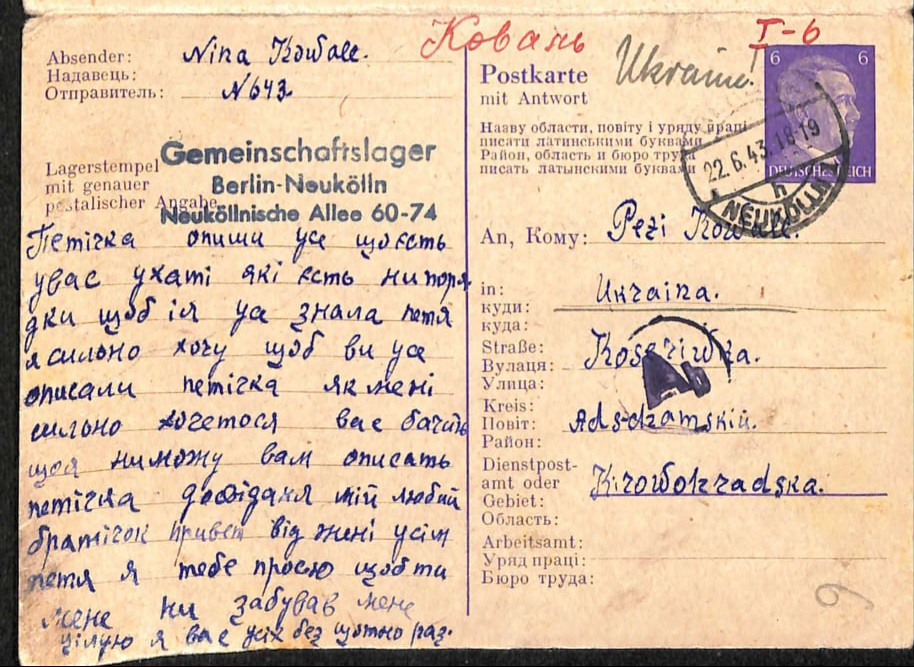 Absender:
Надавець:
Отправитель:
Nina Kowale.
N643
Lagerstempel
mit genauer
postalischer Angabe
Gemeinschaftslager
Berlin-Neukölln
Neuköllnische Allee 60-74
Петічка опиши усе що єсть
увас ухаті які єсть нипоря
дки щоб ія усе знала петя
я сильно хочу щоб ви усе
описали петічка як мені
сильно хочетося вас бачить
що я ниможу вам описать
петічка досвіданя мій любий
братічок привет від мені усім
петя я тебе просю щоб ти
мене ни забував мене
цілую я вас усіх без щотно раз.
Ковань
I-6
Postkarte
mit Antwort
Ukraine!
6 6
DEUTSCHES REICH
22.6.43.18-19
h
NEUKÖLLN
Назву области, повіту і уряду праці
писати латинськими буквами
Район, область и бюро труда
писать латынскими буквами
An, Кому: Pezi Kowale.
in:
куди:
куда:
Ukraina.
Straße:
Вулаця:
Улица:
Koseriwka.
Ab
Kreis:
Повіт:
Район:
Adsdzamskiu.
Dienstpost-
amt oder
Gebiet:
Область:
Kirowohradska.
Arbeitsamt:
Уряд праці:
Бюро труда:
6